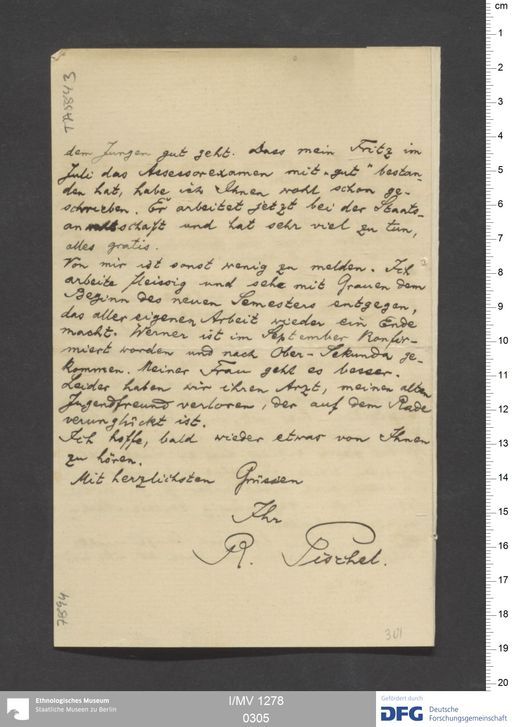 TA 5843
dem Jungen gut geht. Dass mein Fritz im
Juli das Assessorexamen mit „gut“ bestan
den hat, habe ich Ihnen wohl schon ge-
schrieben. Er arbeitet jetzt bei der Staats-
anwaltschaft und hat sehr viel zu tun,
alles gratis.
Von mir ist sonst wenig zu melden. Ich
arbeite fleissig und sehe mit Grauen dem
Beginn des neuen Semesters entgegen,
das aller eigenen Arbeit wieder ein Ende
macht. Werner ist im September konfir-
miert worden und nach Ober-Sekunda ge-
kommen. Meiner Frau geht es besser.
Leider haben wir ihren Arzt, meinen alten
Jugendfreund verloren, der auf dem Rade
verunglückt ist.
Ich hoffe, bald wieder etwas von Ihnen
zu hören.
Mit herzlichsten Grüssen
Ihr
R. Pischel.
7894
301
cm
1
2
3
4
5
6
7
8
9
10
11
12
13
14
15
16
17
18
19
20
Ethnologisches Museum
Staatliche Museen zu Berlin
I/MV 1278
0305
Gefördert durch
DFG Deutsche
Forschungsgemeinschaft